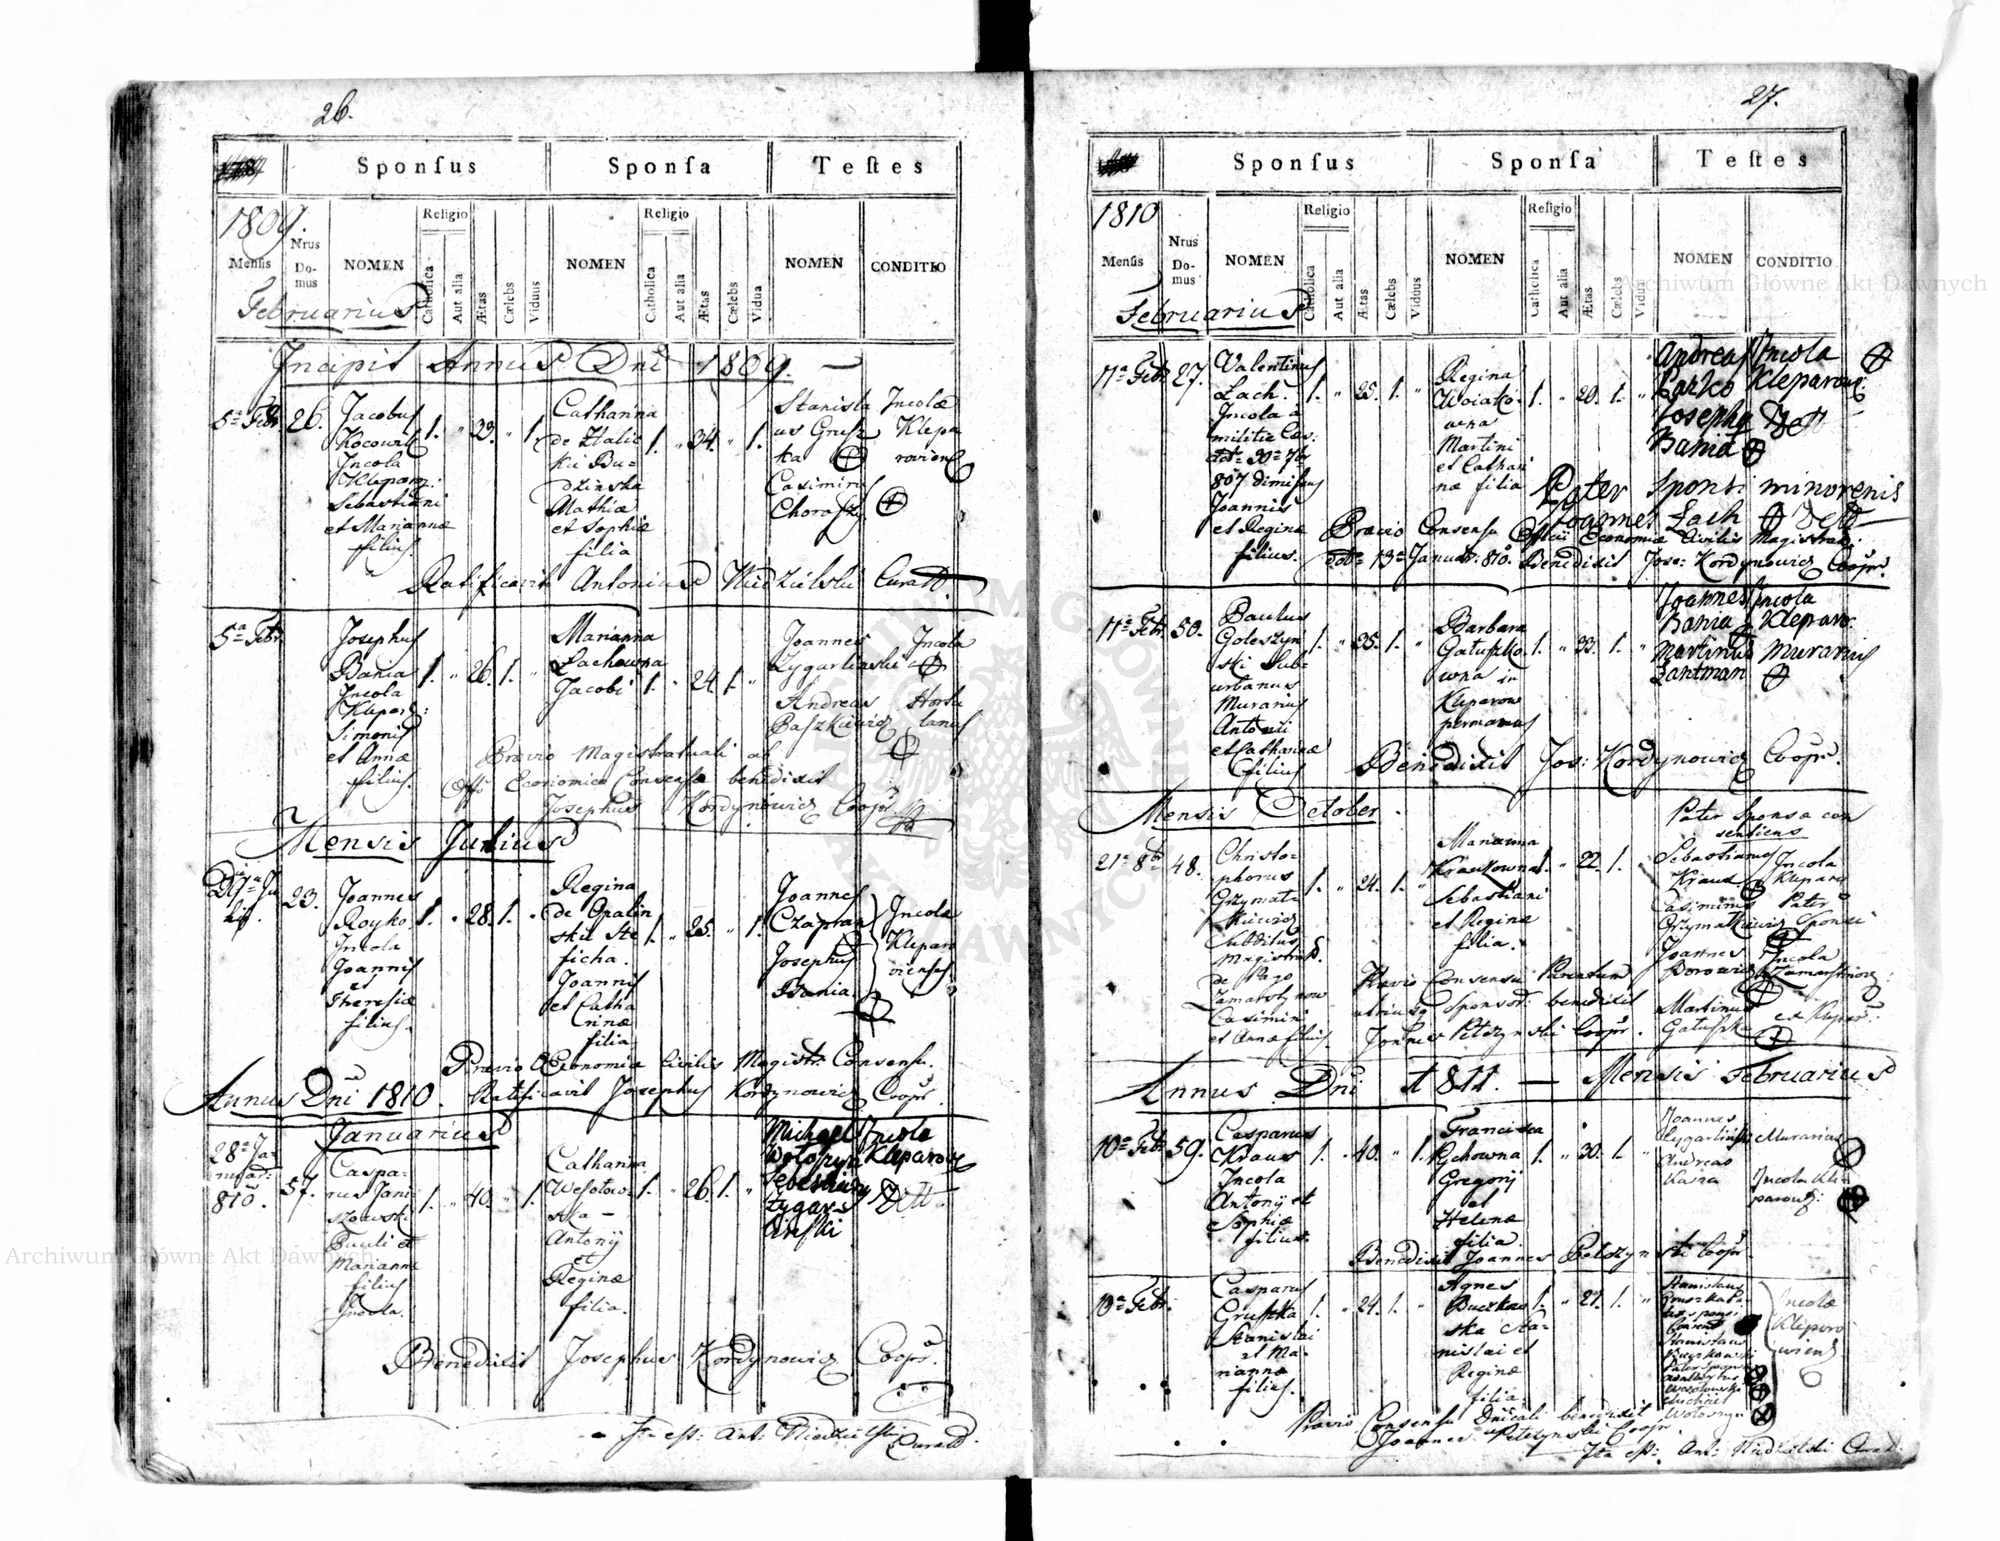 26.
Sponſus Sponſa Teſtes
1809.
Menſis
Nrus Do-mus
NOMEN
Religio
Catholica
Aut alia
Ætas
Cælebs
Viduus
NOMEN
Religio
Catholica
Aut alia
Ætas
Cælebs
Vidua
NOMEN
CONDITIO
Februarius
Incipit Annus Dni 1809. —
5ta Feb. 26.
Jacobus
Incola
Sebastiani
et Mariannæ
filius.
1. " 32. " 1.
Catharina
de
Mathiæ
et Sophiæ
filia
1. " 34. " 1.
Stanisla
us Grusz
ka
Casimirus
Incolæ
Klepa
roviens
Ratificavit Antonius Niedzielski Curatt.
5ta Feb.
Josephus
Bania
Incola
Klepar:
Simonis
et Annæ
filius.
1. " 26. 1. "
Marianna
Lachowna
Jacobi
1. " 24. 1. "
Joannes
Zygarlinski
Andreas
Baszkiewicz
Incola
Hortu
lanus
Prævio Magistratuali ab
Offi Economico Consensu benedixit
Josephus Kordynowicz Coopr
Mensis Junius
23.
Joannes
Royko
Incola
Joannis
et
Theresiæ
filius.
1. " 28. 1. "
Regina
de Opalin
skie Ste
ficha.
Joannis
et Catha
rinæ
filia.
1. " 25. " 1.
Joannes
Czapran
Josephus
Bania
Incolæ
Kleparo
vienses
Prævio Œconomiæ Civilis Magistr: Consensu.
Ratificavit Josephus Kordynowicz Coopr.
Annus Dni 1810.
Januarius
28a Ja-
nuar:
810.
57.
Caspa-
rus Jani
szowski
Pauli et
Mariannæ
filius
Incola.
1. " 40. " 1.
Catharina
Wesołow-
ska —
Antonij
et
Reginæ
filia.
1. " 26. 1. "
Michael
Wołoszyn
Zygar-
liński
Incola
Kleparow
Dett.
Benedixit Josephus Kordynowicz Coopr.
Ita est: Ant: Niedzielski
Curatt.
27.
Sponſus Sponſa Teſtes
1810
Menſis
Nrus Do-mus
NOMEN
Religio
Catholica
Aut alia
Ætas
Cælebs
Viduus
NOMEN
Religio
Catholica
Aut alia
Ætas
Cælebs
Vidua
NOMEN
CONDITIO
Februarius
11a Feb. 27.
Valentinus
Lach.
Incola a
militia Cæs:
807 dimissus
Joannis
et Reginæ
filius.
1. " 25. 1. "
Regina
Woiako-
wna
Martini
et Cathari
næ filia
1. " 20. 1. "
Andreas
Josephus
Bania
Incola
Kleparow:
Dett
Pater Sponsi minorenis
Joannes Lach Dett
Prævio Consensu Officii Economiæ Civilis Magistrat:
dto 13a Januar: 810. Benedixit Jos: Kordynowicz Coopr.
11a Feb. 50.
Paulus
Goleszyn
ski Sub-
urbanus
Murarius
Antonii
et Catharinæ
filius
1. " 35. 1. "
Barbara
Gałuszko
wna in
Kleparow
permanens
1. " 33. 1. "
Joannes
Bania
Martinus
Zantman
Incola
Kleparo.
Murarius
Benedixit Jos: Kordynowicz Coopr.
Mensis October.
21a 8b 48.
Christo-
phorus
Grzymal-
kiewicz
Subditus
Magistrat:
de Pago
Zamarstynow
Casimiri
et Annæ filius
1. " 24. 1. "
Marianna
Krauzowna
Sebastiani
et Reginæ
filia.
1. " 22. 1.
Pater Sponsæ con
sentiens
Sebastianus
Kraus
Casimirus
Grzymalkiewicz
Joannes
Borowicz
Martinus
Gałuszk
Incola
Klepar
Pater
Sponsi
Incola
Zamarstinow:
ex Klepar:
Prævio Consensu Parentum
utriusq Sponsor: benedixit
Joannes Pelczynski Coopr.
Annus Dni 1811. — Mensis Februarius
10a Feb. 59.
Casparus
Kraus
Incola
Antonij et
Sophiæ
filius.
1. " 40. " 1.
Francisca
Rchowna
Gregorij
et
Helenæ
filia.
1. " 30. 1. "
Joannes
Zygarlinski
Andreas
Murarius
Incola Kle-
parow:
Benedixit Joannes Pelczynski Coopr.
10a Feb.
Casparus
Gruszka
Stanislai
et Ma-
riannæ
filius.
1. " 24. 1. "
Agnes
Buczkow
ska Sta-
nislai et
Reginæ
filia.
1. " 21. 1. "
Stanislaus
Gruszka Pa-
ter sponsi
Stanislaus
Buczkowski
Pater sponsæ
Wesołowski
Michael
Wołoszyn
Incolæ
Kleparo
wiens
Prævio Consensu Dnicali benedixit
Joannes Pelczynski Coopr.
Ita est: Ant: Niedzielski Curat.
Archiwum Główne Akt Dawnych
Archiwum Główne Akt Dawnych
ARCHIWUM GŁÓWNE AKT DAWNYCH